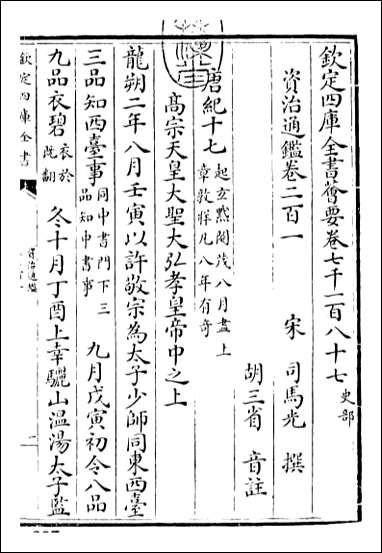 欽定四庫全書薈要卷七千一百八十七 史部
資治通鑑卷二百一 宋 司馬光 撰
胡三省 音註
唐紀十七 起玄黓閹茂八月盡上章敦牂凡八年有奇
高宗天皇大聖大弘孝皇帝中之上
龍朔二年八月壬寅以許敬宗為太子少師同東西臺
三品知西臺事 同中書門下三品知中書事 九月戊寅初令八品
九品衣碧 衣於既翻 冬十月丁酉上幸驪山温湯太子監
欽定四庫全書
資治通鑑
一